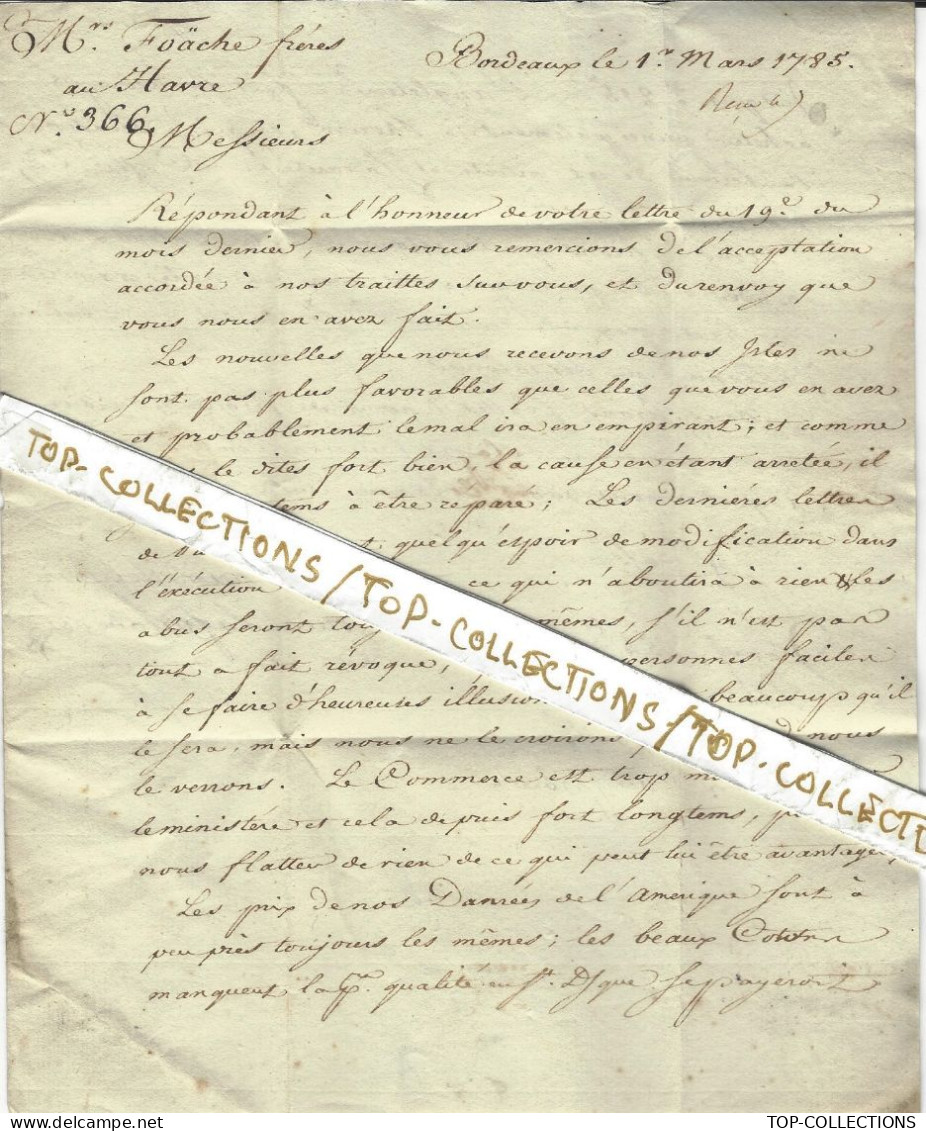 Mrs. Foäche fréres
au Havre
No. 366.
Bordeaux le 1er. Mars 1785.
Messieurs
Répondant à l'honneur de votre lettre du 19e. du
mois dernier, nous vous remercions de l'acceptation
accordée à nos traittes sur vous, et du renvoy que
vous nous en avez fait.
Les nouvelles que nous recevons de nos Isles ne
sont pas plus favorables que celles que vous en avez
et probablement le mal ira en empirant; et comme
le dites fort bien, la cause en étant arretée, il
tems à être reparé; Les derniéres lettres
de quelqu'éspoir de modification dans
l'éxécution ce qui n'aboutira à rien les
abus seront mêmes, s'il n'est pas
tout a fait révoqué, personnes faciles
à se faire d'heureuses beaucoup qu'il
le sera, mais nous ne le croirons nous
le verrons. Le Commerce est trop
le ministére et cela depuis fort longtems,
nous flatter de rien de ce qui peut lui être avantageux,
Les prix de nos Danrées de l'Amerique sont à
peu près toujours les mêmes; les beaux Cottons
manquent la pre. qualité en St. Dgue se payeroit
TOP-COLLECTIONS / TOP-COLLECTIONS / TOP-COLLECTI
TOP-COLLECTIONS